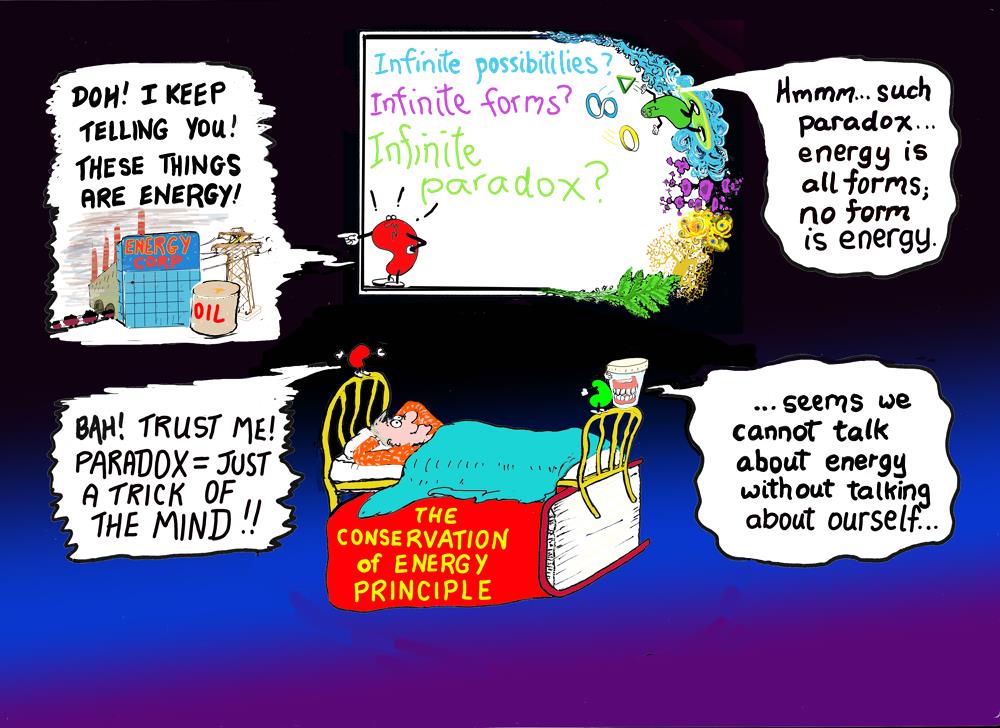 DOH! I KEEP
TELLING YOU!
THESE THINGS
ARE ENERGY!
ENERGY
CORP
OIL
Infinite possibitilies?
Infinite forms?
Infinite
paradox?
! ! !
Hmmm... such
paradox...
energy is
all forms;
no form
is energy.
BAH! TRUST ME!
PARADOX = JUST
A TRICK OF
THE MIND!!
...seems we
cannot talk
about energy
without talking
about ourself...
THE
CONSERVATION
of ENERGY
PRINCIPLE